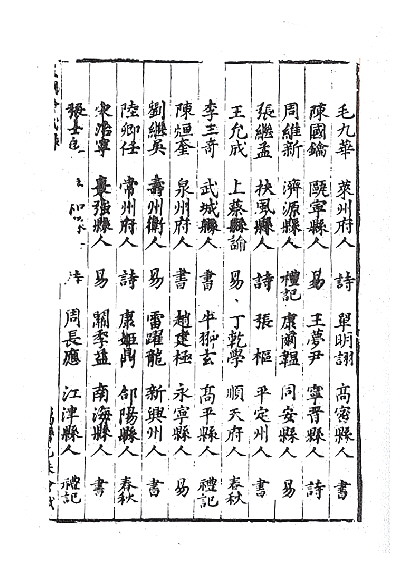 毛九華 萊州府人 詩 單明詡 高密縣人 書
陳國鑰 甌寧縣人 易 王夢尹 寧晉縣人 詩
周維新 濟源縣人 禮記 康爾韞 同安縣人 易
張繼孟 扶風縣人 詩 張樞 平定州人 書
王允成 上蔡縣諭 易 丁乾學 順天府人 春秋
李三奇 武城縣人 書 平 高平縣人 禮記
陳烜奎 泉州府人 書 趙建極 永寧縣人 易
劉繼吳 壽州衛人 易 雷躍龍 新興州人 書
陸卿任 常州府人 詩 康姬鼎 郃陽縣人 春秋
宋禎寧 棗強縣人 易 關季益 南海縣人 書
張士 周長應 江津縣人 禮記